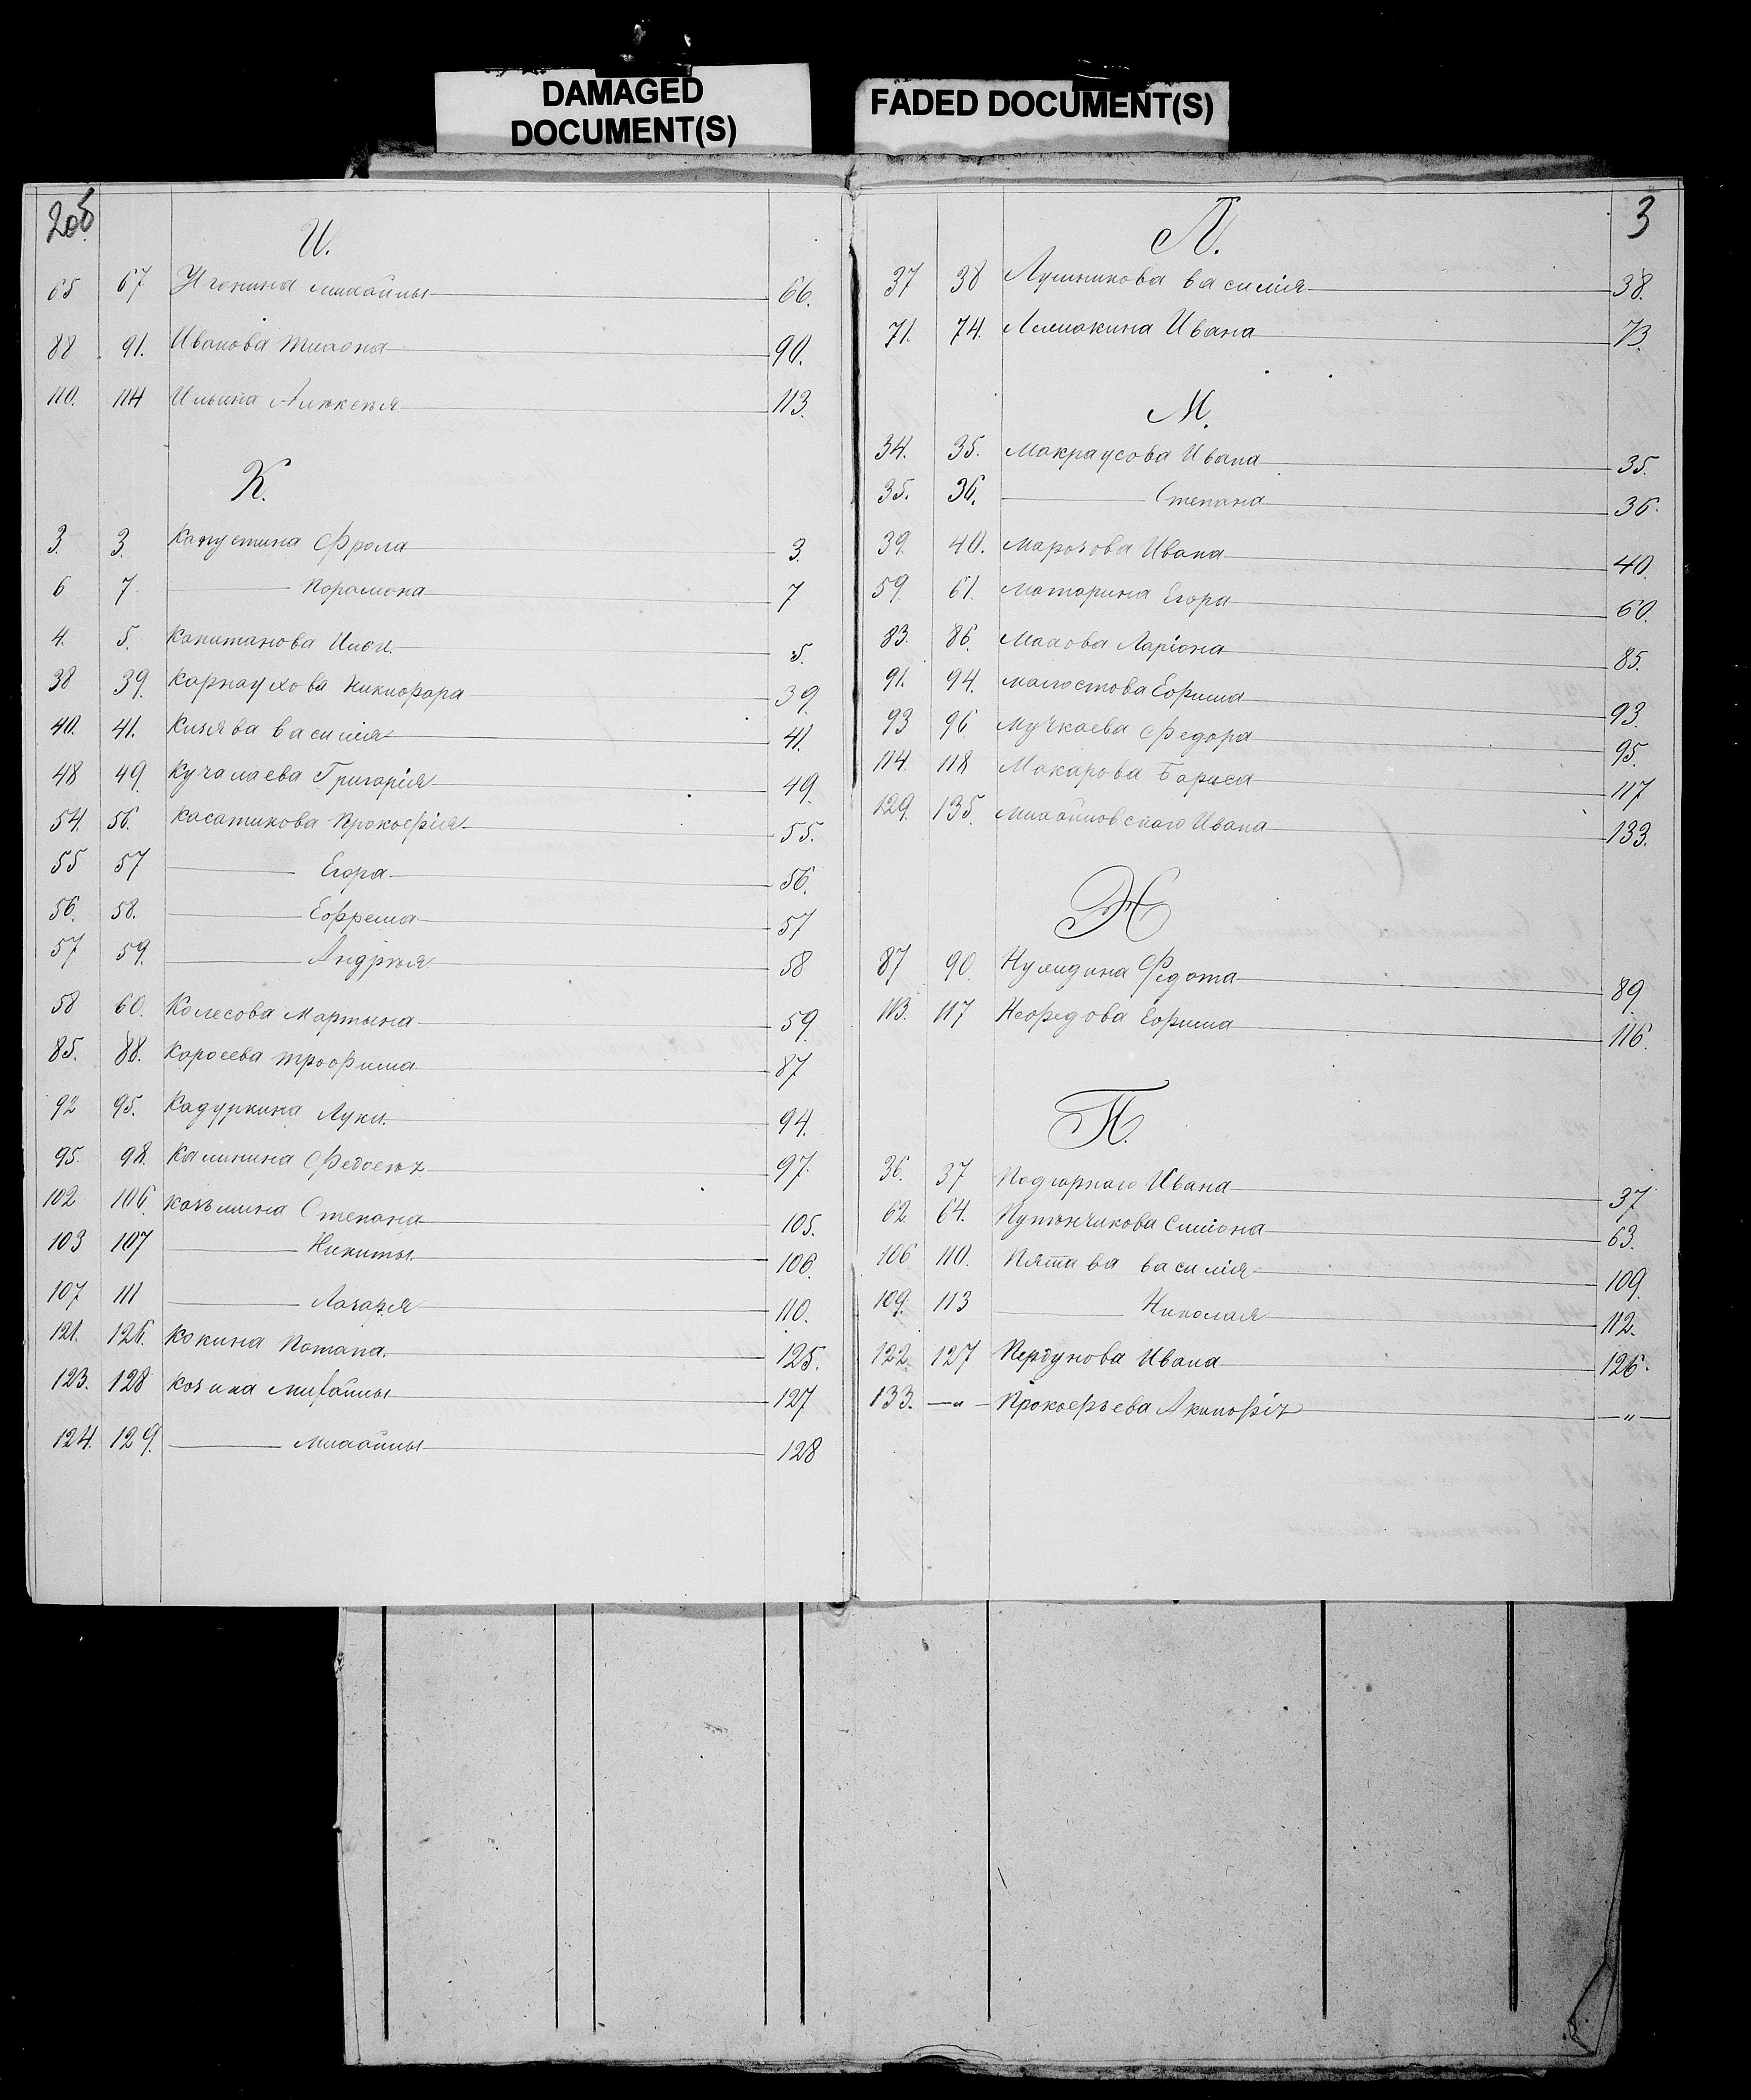 DAMAGED
DOCUMENT(S)
FADED DOCUMENT(S)
2об
И.
65 67 Игонина Михайлы 66.
88 91. Иванова Тихона 90.
110. 114 Ильина Алѣксѣя 113.
К.
3. 3. Капустина Фрола 3.
6 7 Парамона 7
4. 5. Капитанова 5.
38 39. Карнаухова Никифора 39
40. 41. Князва Василія 41.
48 49. Кучалаева Григорія 49.
54. 56. Касаткинова Прокофія 55.
55 57 Егора 56.
56. 58. Ефрема 57
57 59. Андрѣя 58
58 60. Колесова Мартына 59.
85. 88. Каро​сева Трофима 87
92 95. Кадуркина Луки. 94.
95. 98. Калинина 97.
102 106. Козьмина Степана 105.
103 107 Никиты 106.
107 111 Лазаря 110.
121. 126. Кокина Потапа. 125.
123. 128 Козина Михайлы 127
124. 129. Михайлы 128
3
Л.
37 38 Лушникова Василія 38.
71. 74. Ивана 73.
М.
34. 35. Макраусова Ивана 35.
35. 36. Степана 36.
39. 40. Марозова Ивана 40.
59. 61. Маторина Егора 60.
83. 86. Махова Ларіона 85.
91. 94. Малостова Ефима 93.
93 96 Мучкаева Федора 95.
114. 118 Макарова Бориса 117
129. 135. Михайловскаго Ивана 133.
Н
87 90. Федота 89.
113. 117 Нефедова Ефима 116.
П.
36. 37 Подгорнаго Ивана 37
62. 64. Путѣнчикова Симіона 63.
106 110. Пятава Василія 109.
109. 113 Николая 112.
122. 127 Пердунова Ивана 126.
133. —"— Прокофьева —"—